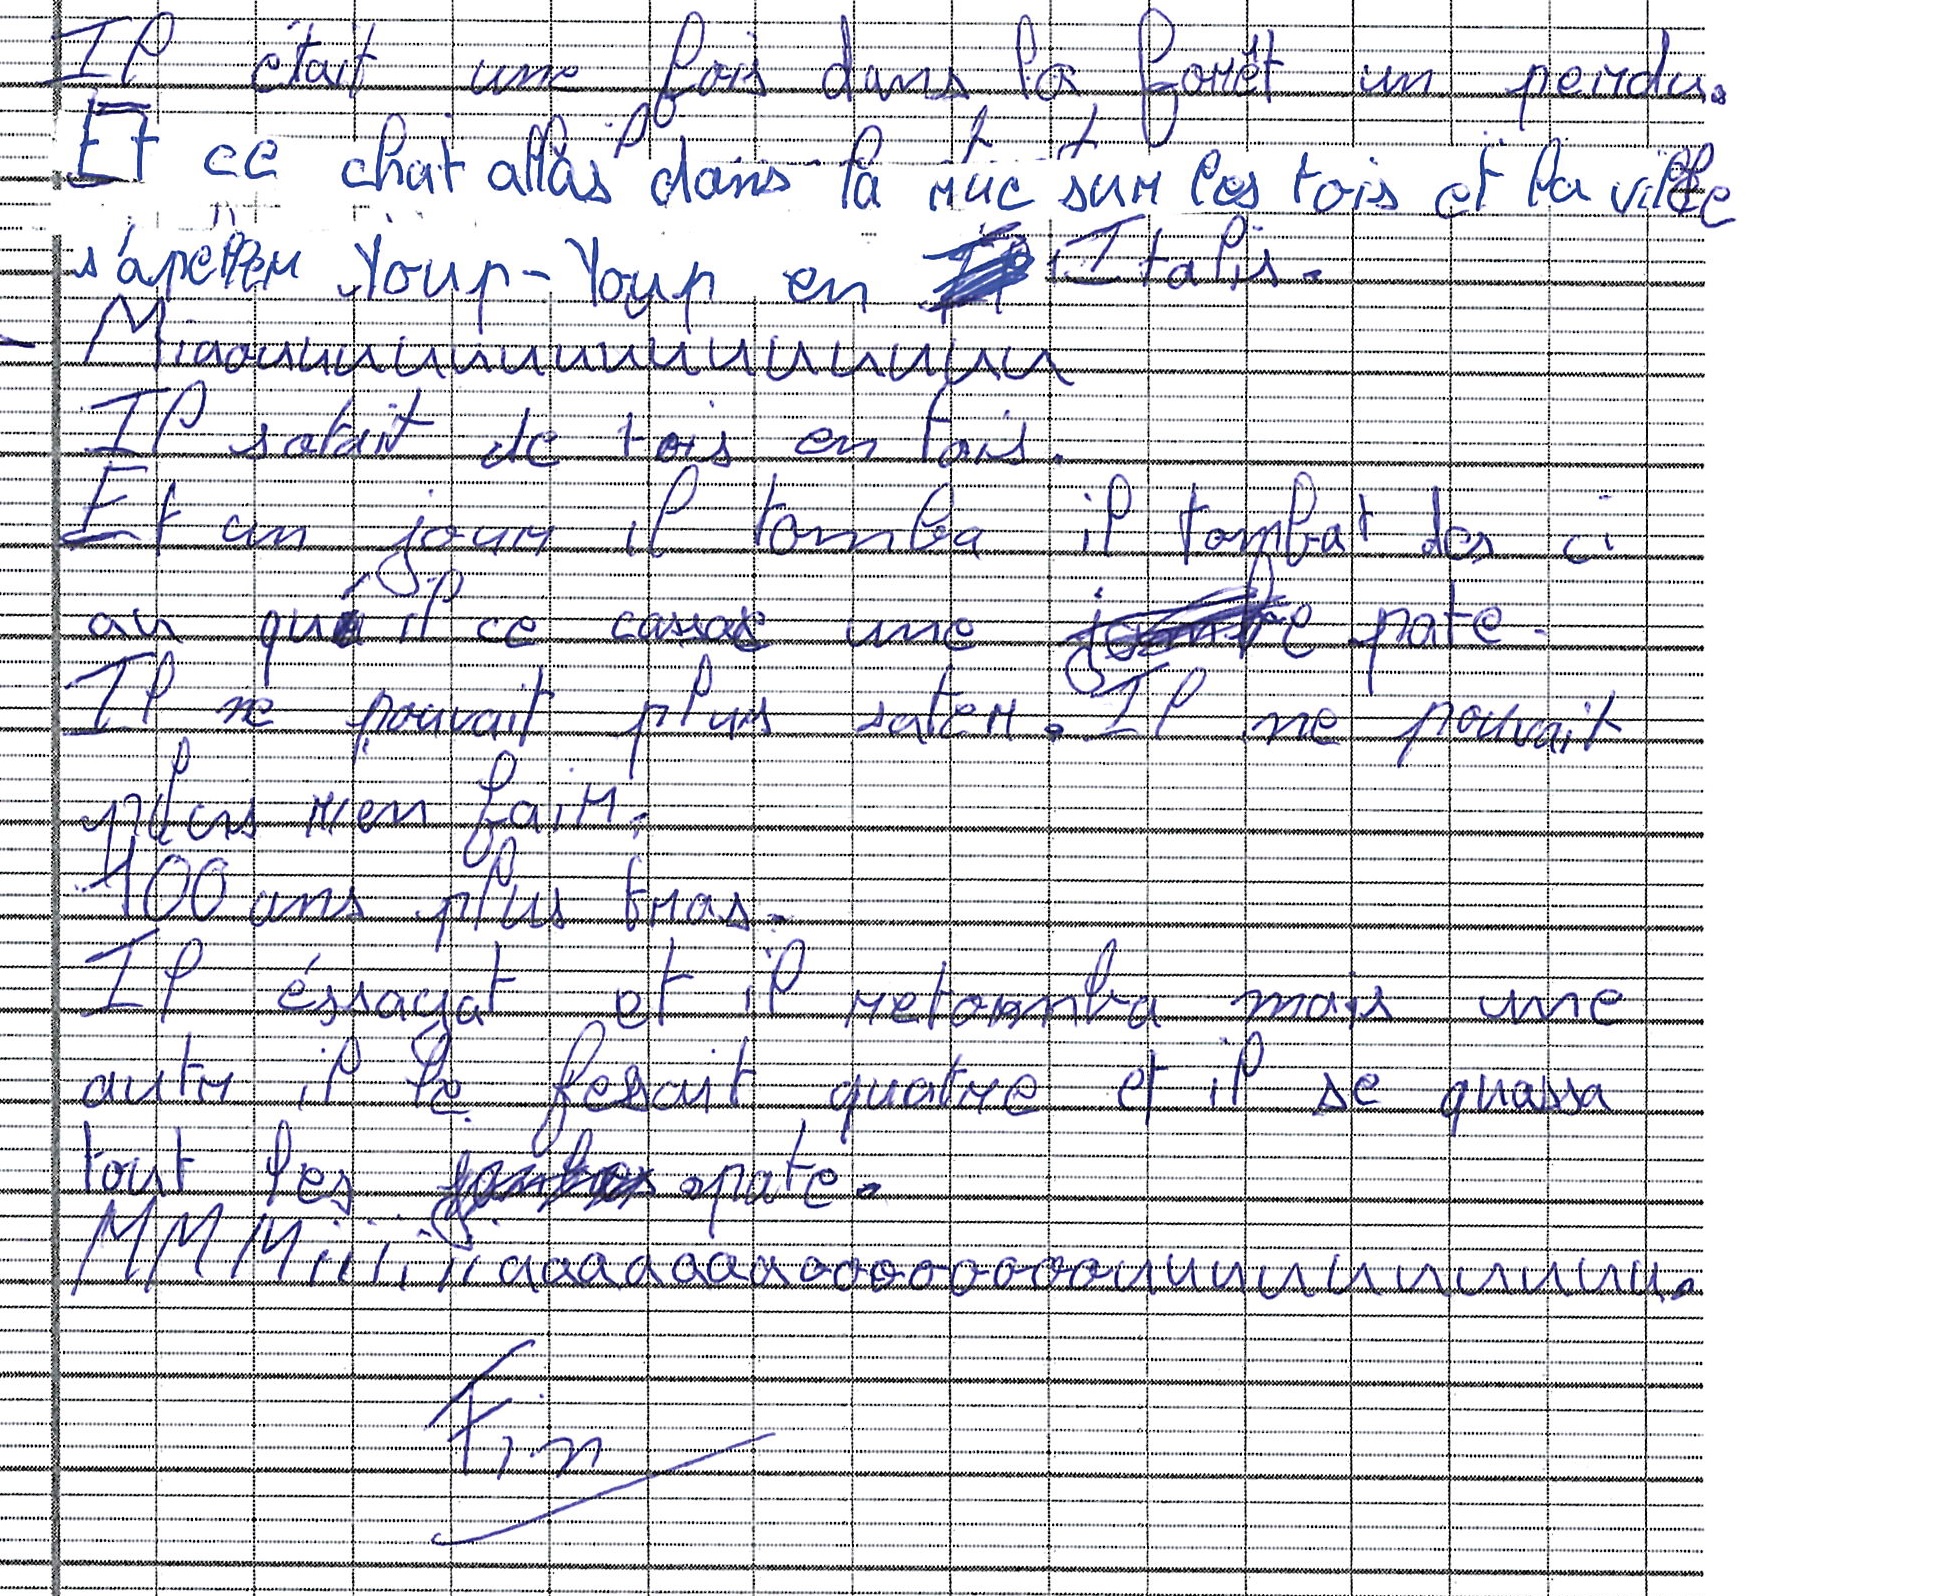 Il était une fois dans la forêt un perdu.
Et ce chat allas dans la rue sur les tois et la ville
s'apeller Youp-Youp en Italis.
- Miaouuuuuuuuuuuuuuu
Il sotait de tois en tois.
Et un jour il tomba il tombat des ci
au qu'il ce cassac une pate.
Il ne pouvait plus sater. Il ne pouvait
plus rien fair.
100 ans plus tras.
Il éssayat et il retomba mais une
autr il le fesait quatre et il se quassa
tout les pate.
MMMiiiiiiaaaaaaaaooooooouuuuuuuuuu.
Fin